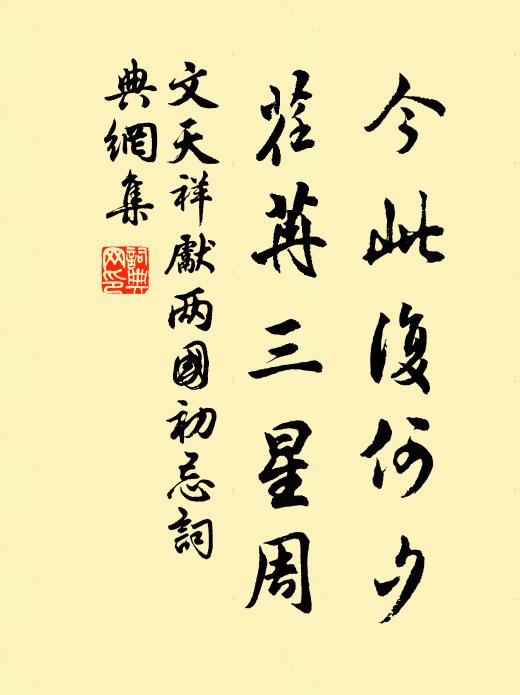 今此復何夕
荏苒三星周
文天祥獻两國初忌詞
典網集
詞典
网印